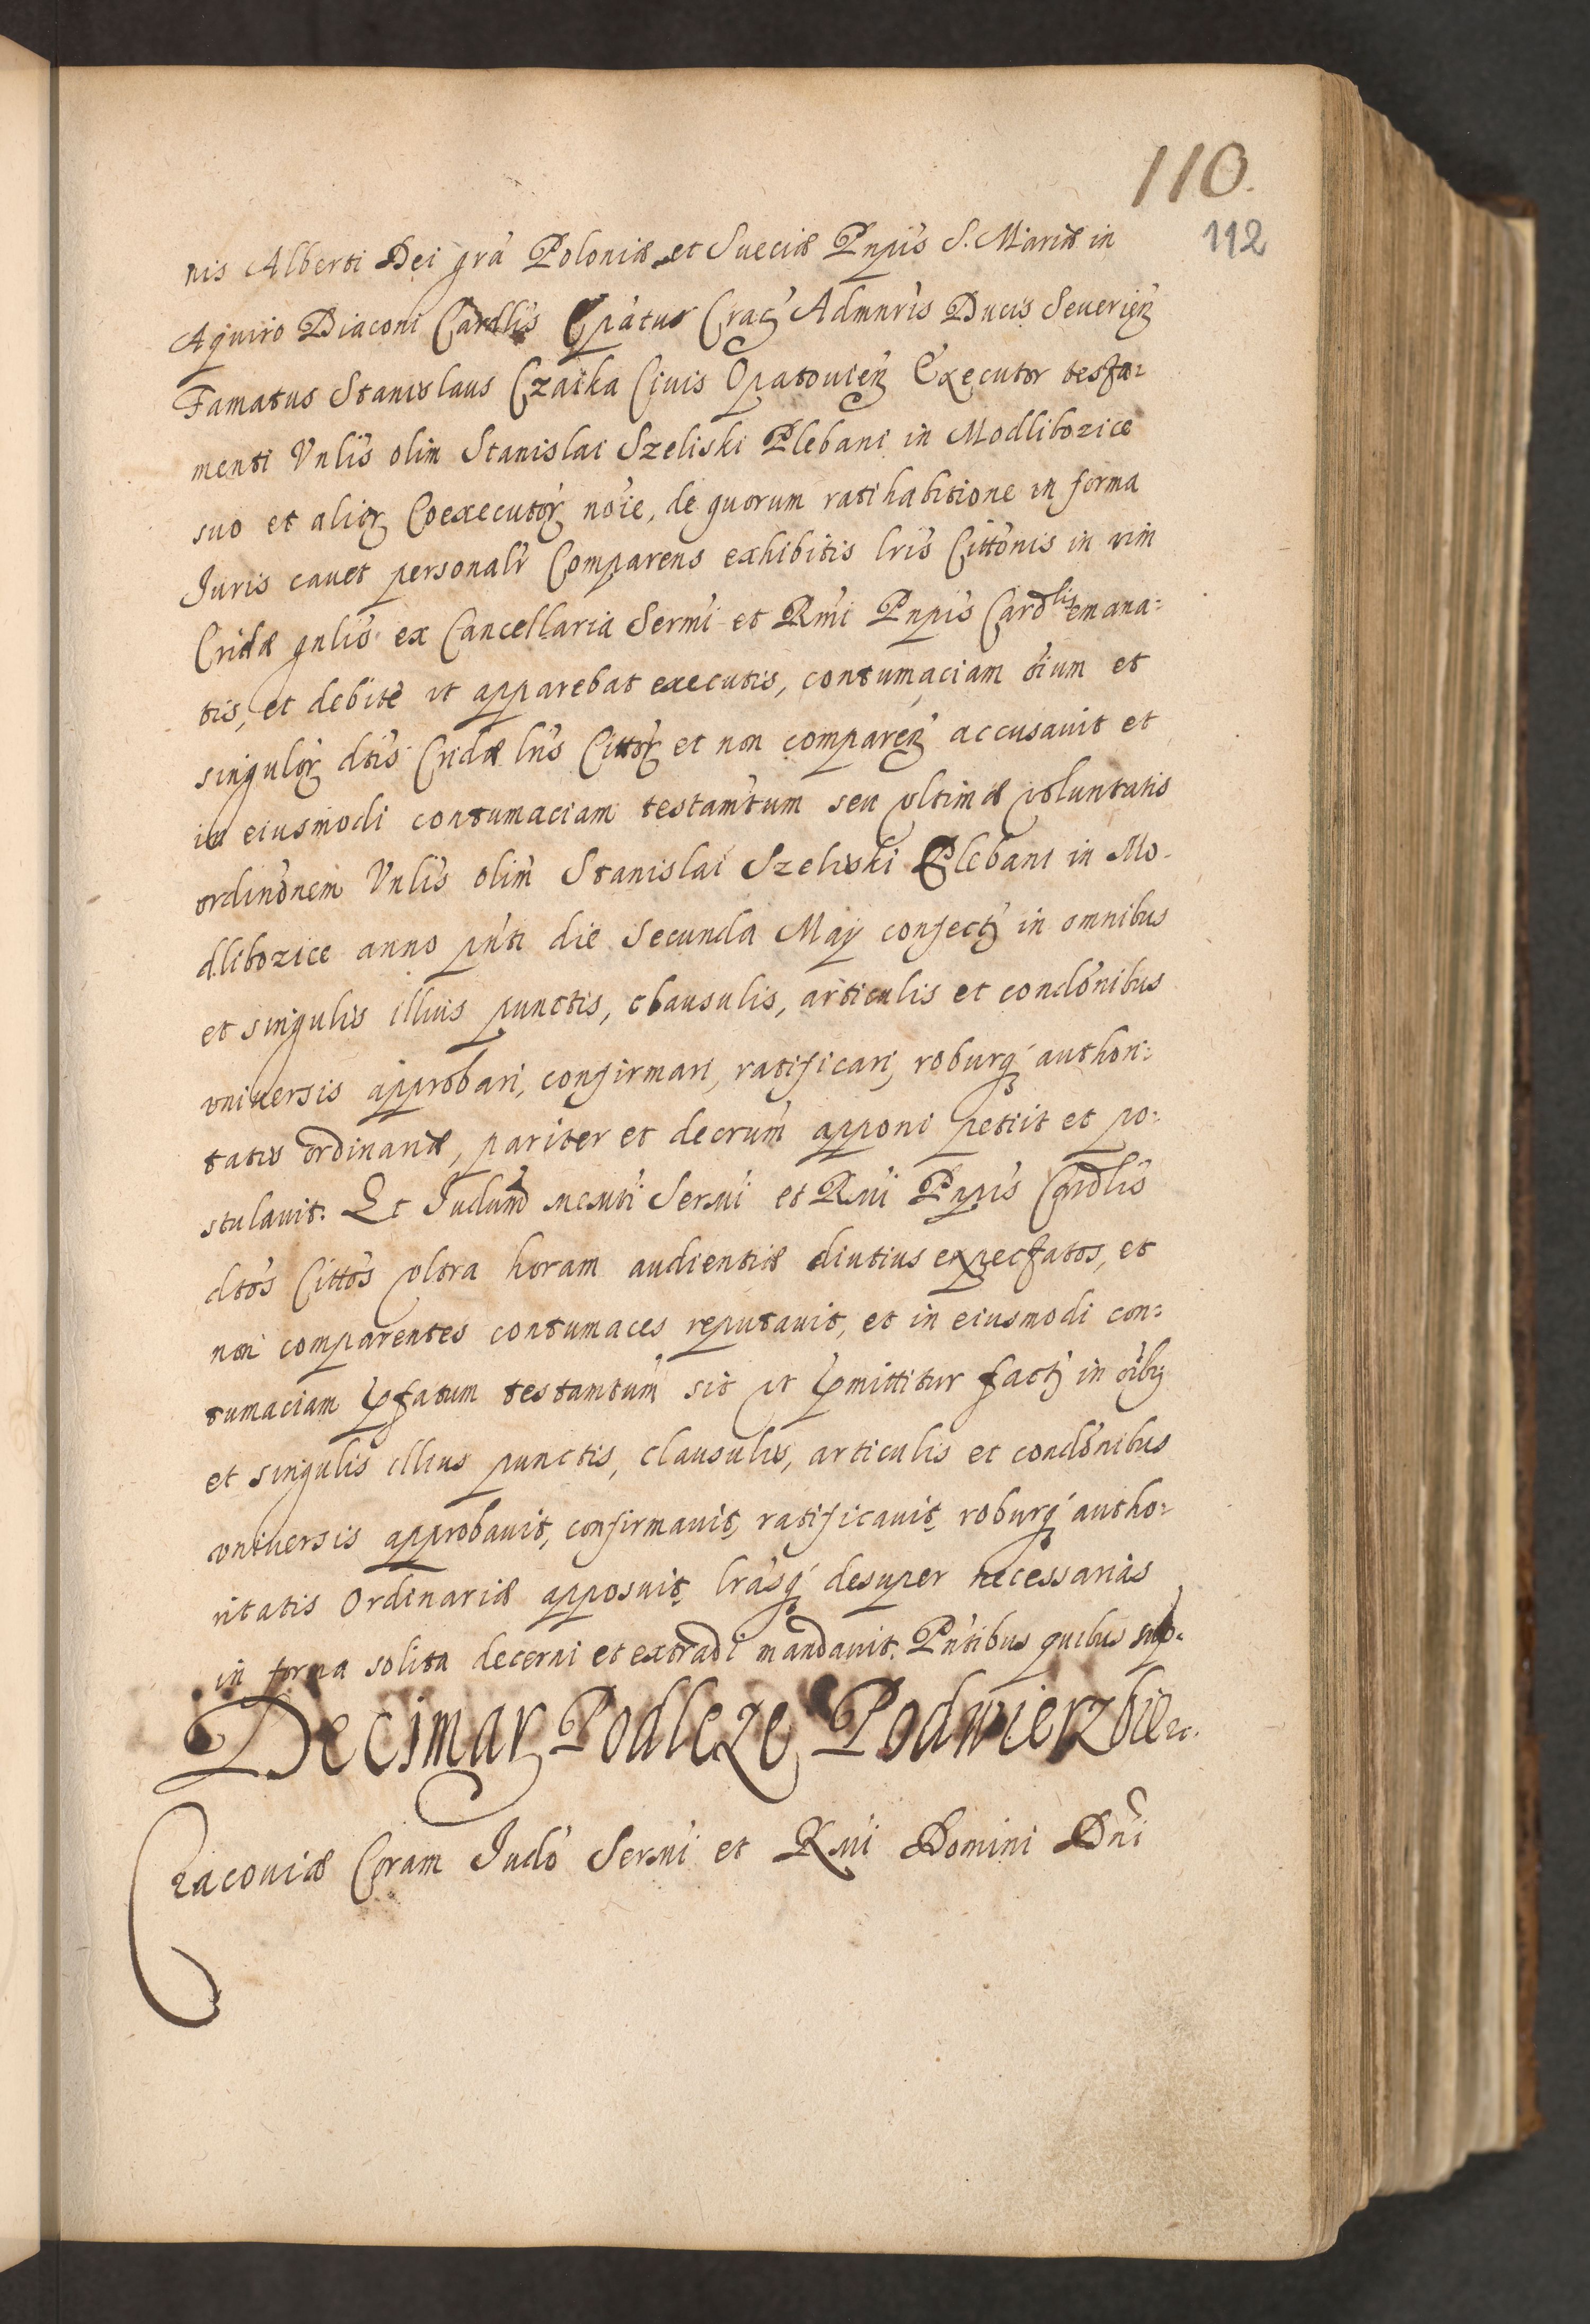 110.
112
nis Alberti Dei grã Poloniæ et Sueciæ Pnpis S. Mariæ in
Aquiro Diaconi Cardlis Epatus Crac Admnris Ducis Severien
Famatus Stanislaus Czaika Civis Opatovien Executor testa:
menti Vnlis olim Stanislai Szeliski Plebani in Modliborzice
suo et alior Coexecutor noie, de quorum ratihabitione in forma
Iuris cavet personalr Comparens exhibitis lris Cittonis in vim
Cridæ gnlis ex Cancellaria Sermi et Rmi Pnpis Cardlis emana:
tis, et debite ut apparebat executis, contumaciam oium et
singulor dtis Cridæ lris Cittor et non comparen accusavit et
in eiusmodi contumaciam testamtum seu vltimæ voluntatis
ordinonem Vnlis olim Stanislai Szeliski Plebani in Mo-
dliborzice anno pnti die Secunda Maij confect in omnibus
et singulis illius punctis, clausulis, articulis et condonibus
vniversis approbari, confirmari, ratificari, roburq authori:
tatis ordinariæ, pariter et decrum apponi petiit et po:
stulavit. Et Iudum Sermi et Rmi Pnpis Cardlis
dtos Cittos vltra horam audientiæ diutius expectatos, et
non comparentes contumaces reputavit, et in eiusmodi con:
tumaciam pfatum testamtum sic ut pmittitur fact in oibq
et singulis illius punctis, clausulis, articulis et condonibus
vniversis approbavit, confirmavit, ratificavit, roburq autho:
ritatis Ordinariæ apposuit, lrasq desuper necessarias
in forma solita decerni et extradi mandavit. Pntibus quibus sup.
Decimar Podleze Podwierzbie etc.
Cracoviæ Coram Iudo Sermi et Rmi Domini Dni